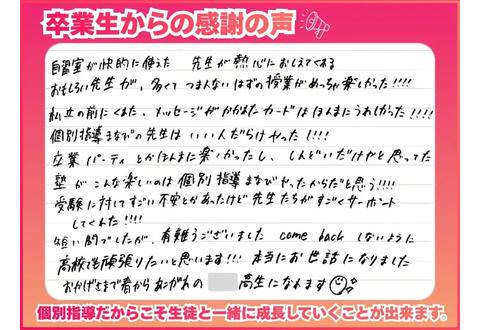 卒業生からの感謝の声
自習室が快的に使えた 先生が熱心におしえてくれる
おもしろい先生が、多くてつまんないはずの授業がめっちゃ楽しかった!!!!
私立の前にくれた、メッセージがかかれたカードはほんまにうれしかった!!!!
個別指導まなびの先生はいい人だらけやった!!!!
卒業パーティとかほんまに楽しかったし、しんどいだけやと思ってた
塾がこんな楽しいのは個別指導まなびやったからだと思う!!!!
受験に対してすごい不安とかあったけど先生たちがすごくサーポート
してくれた!!!!
短い間でしたが、有難うございました come back しないように
高校も頑張りたいと思います!!! 本当にお世話になりました
おかげさまで春からあこがれの 高生になれます
個別指導だからこそ生徒と一緒に成長していくことが出来ます。